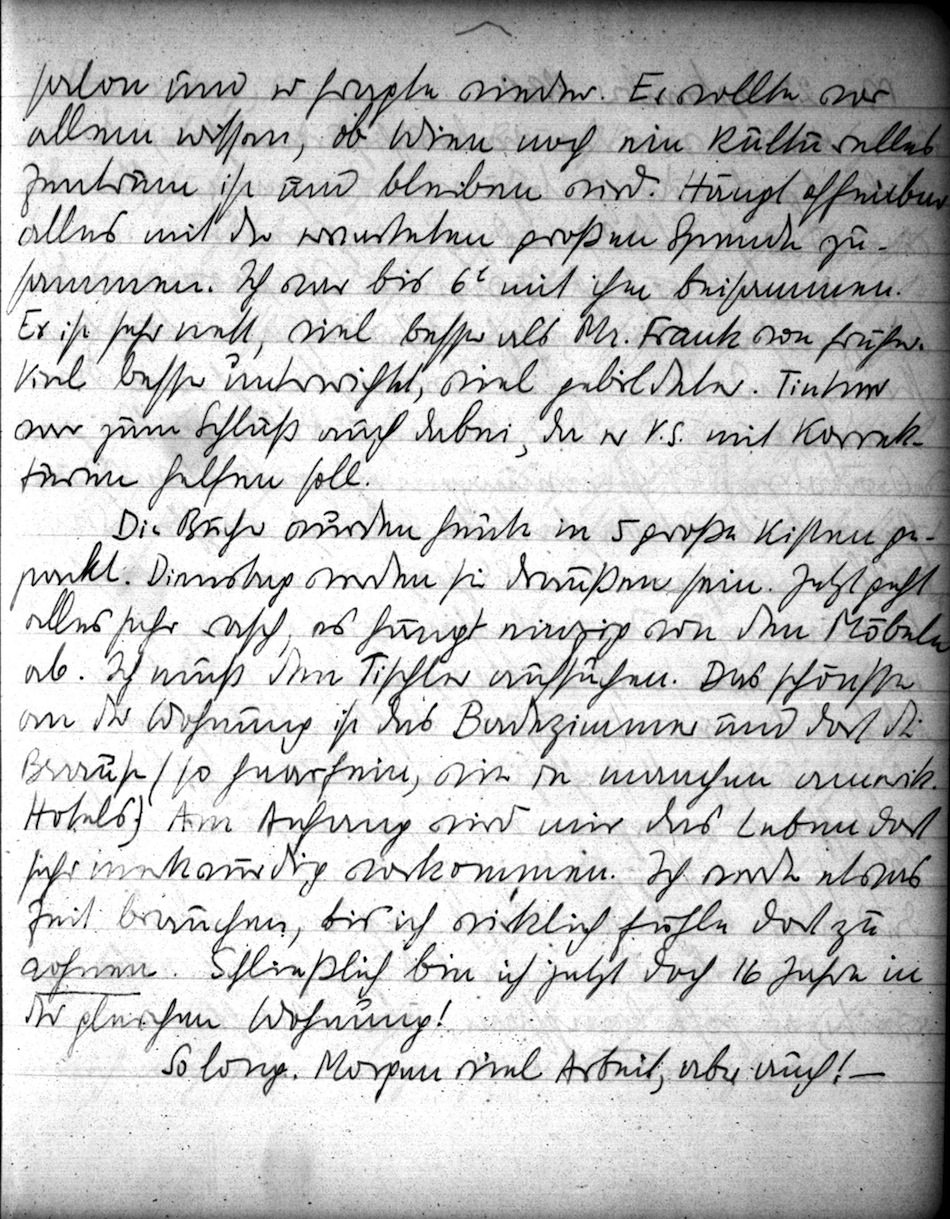 salon und er fragte wieder. Er wollte vor
allem wissen, ob Wien noch ein kulturelles
Zentrum ist und bleiben wird. Hängt offenbar
alles mit der erwarteten großen Spende zu-
sammen. Ich war bis 6ʰ mit ihm beisammen.
Er ist sehr nett, viel besser als Mr. Frank von früher.
Viel besser unterrichtet, viel gebildeter. Tintner
war zum Schluß auch dabei, da er V.S. mit Korrek-
turen helfen soll.
Die Bücher wurden heute in 5 große Kisten ge-
packt. Dienstag werden sie draußen sein. Jetzt geht
alles sehr rasch, es hängt einzig von den Möbeln
ab. Ich muß den Tischler aufsuchen. Das schönste
an der Wohnung ist das Badezimmer und dort die
Brause (so haarfein, wie in manchen amerik.
Hotels.) Am Anfang wird mir das Leben dort
sehr merkwürdig vorkommen. Ich werde etwas
Zeit brauchen, bis ich wirklich fühle dort zu
wohnen. Schließlich bin ich jetzt doch 16 Jahre in
der gleichen Wohnung!
So long. Morgen viel Arbeit, aber auch! —